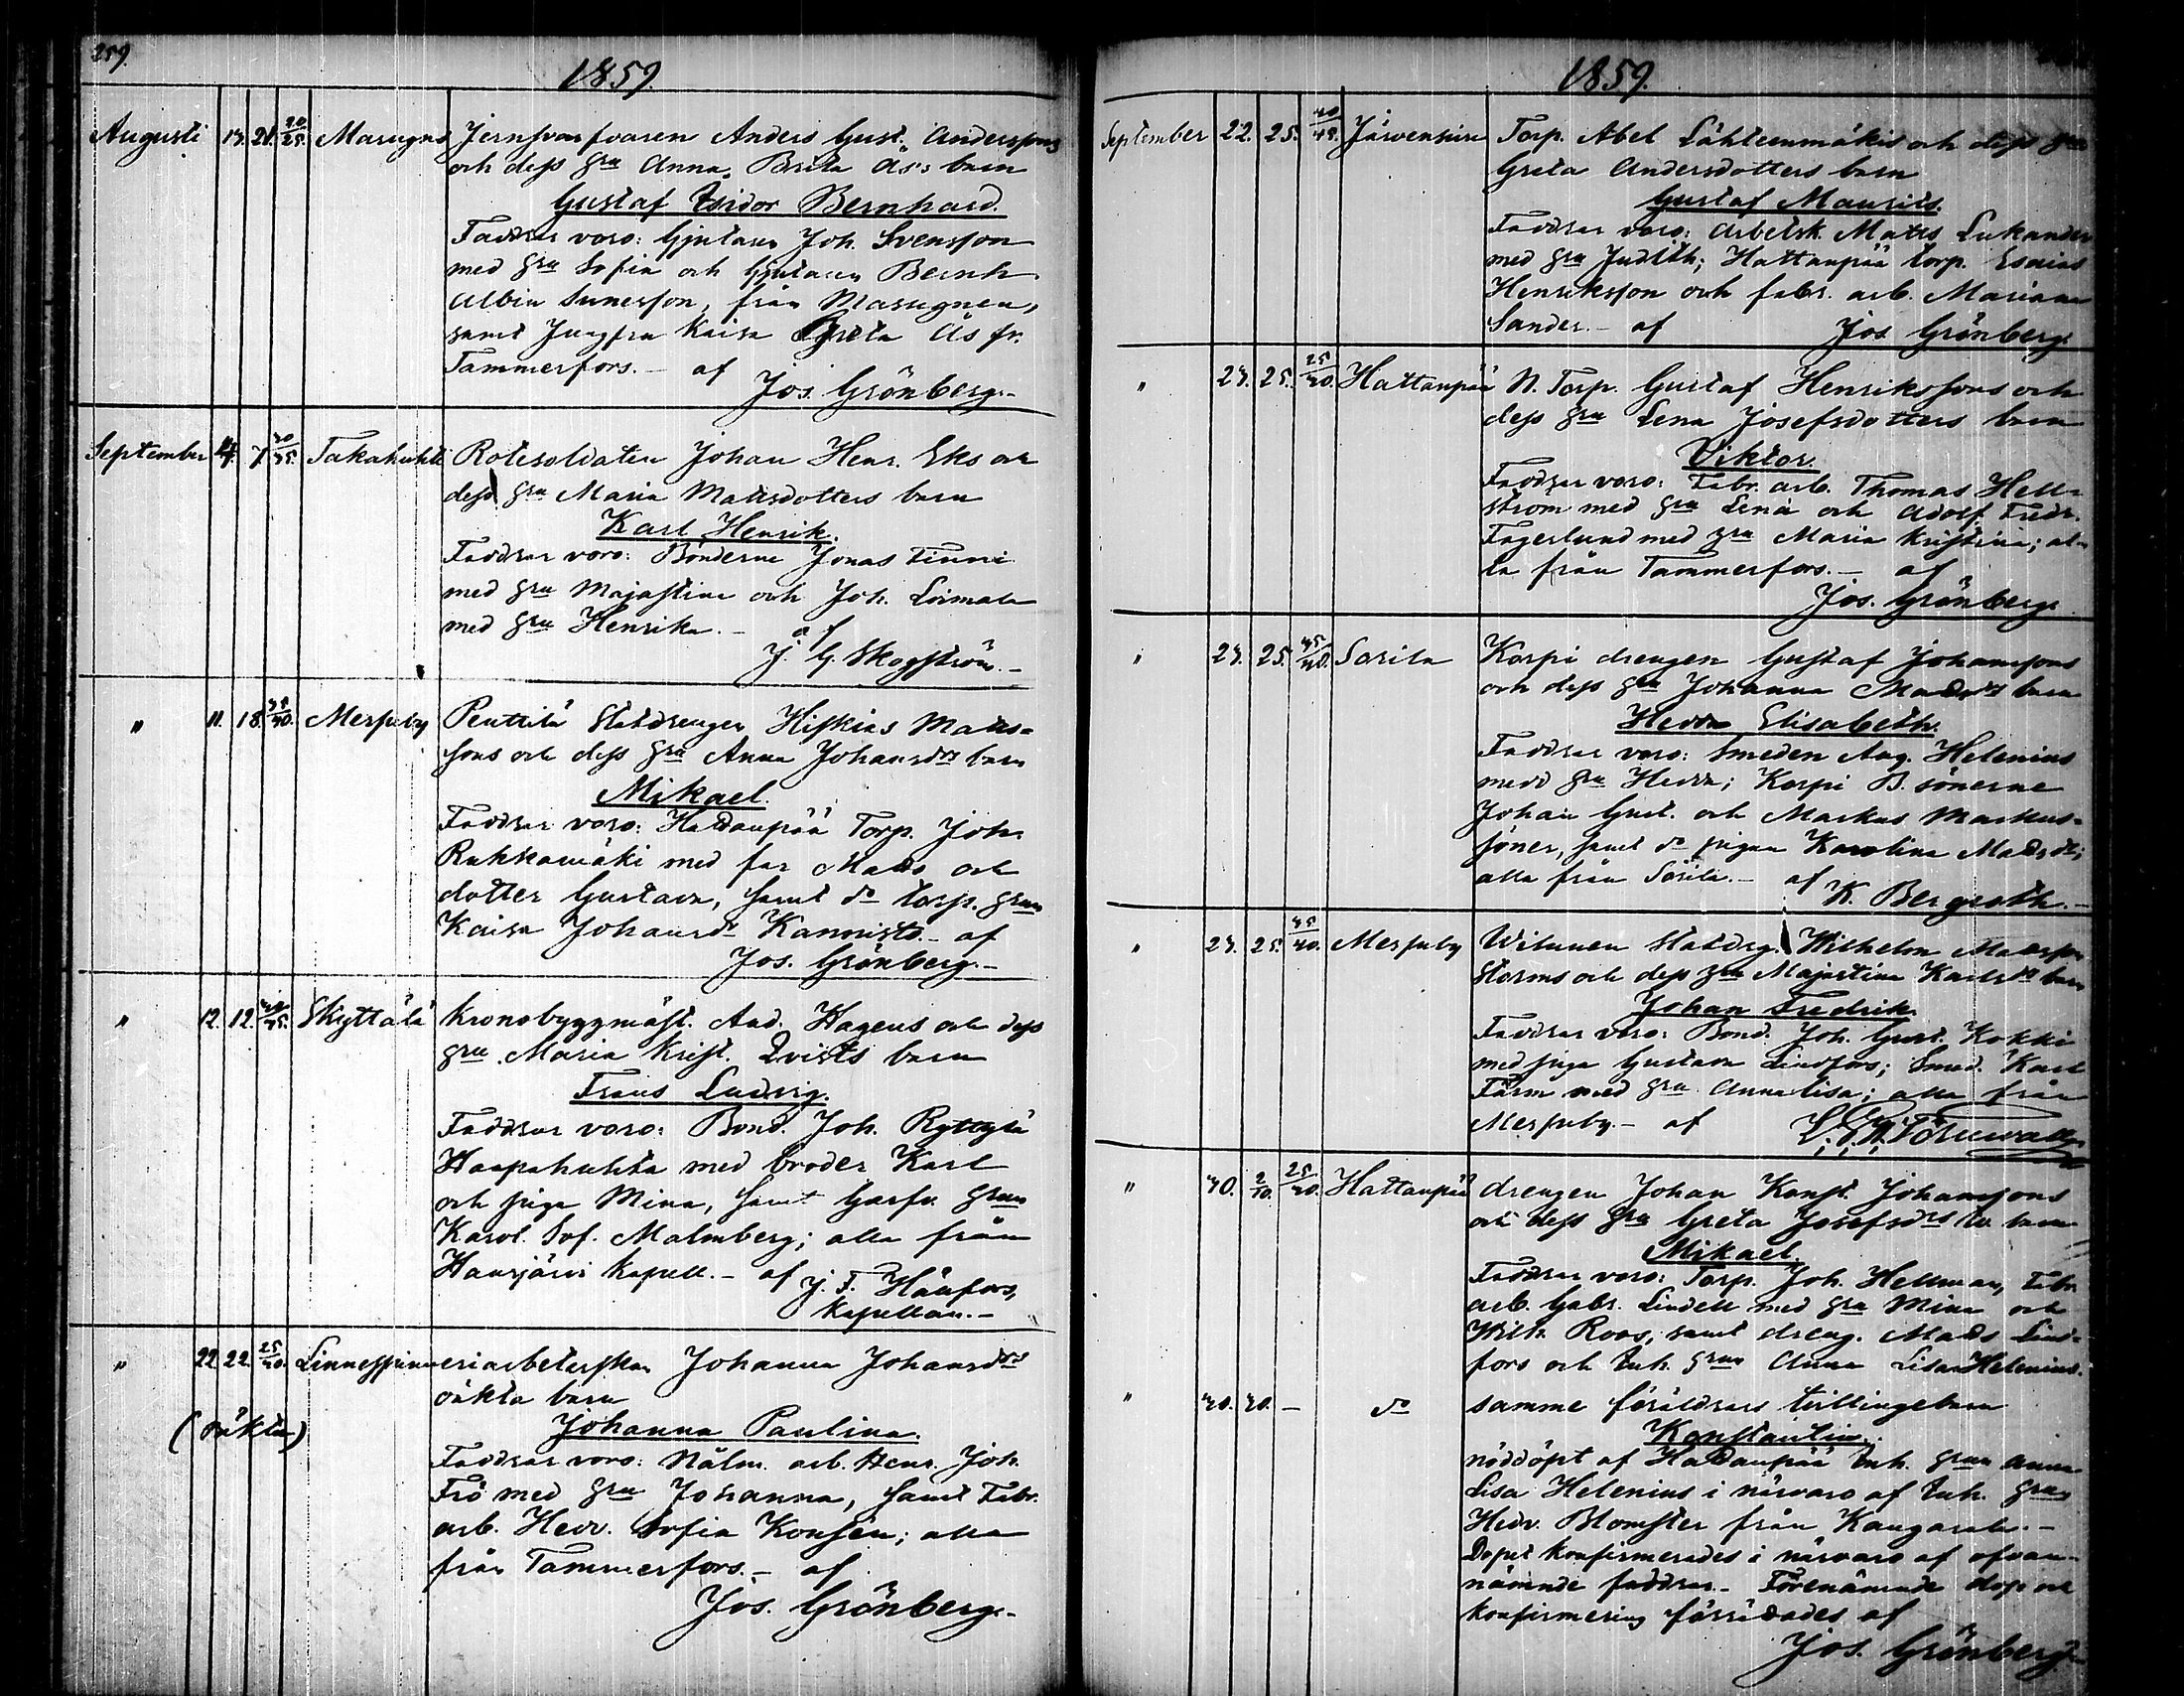 259.
1859.
Augusti 13. 21. 20/25. Marugns Jernsvarfvaren Anders Gust. Anderssons
och dess hru Anna Brita Ås's barn
Gustaf Isidor Bernhard.
Faddrar voro: Gjutaren Joh. Svensson
med hru Sofia och Gjutaren Bernh.
Albin Sunesson, från Marugnen,
samt Jungfru Kaisa Greta Ås fr.
Tammerfors. – af
Jos. Grönberg. –
September 4. 7. 30/35. Takahuhti Rotesoldaten Johan Henr. Eks och
dess hru Maria Matsdotters barn
Karl Henrik.
Faddrar voro: Bönderne Jonas Finni
med hru Majastina och Joh. Loimala
med hru Henrika. –
af
J. G. Skogström. –
" 11. 18. 35/40. Messuby Penttilä Statdrengen Hiskias Mats=
sons och dess hru Anna Johansdrs barn
Mikael.
Faddrar voro: Hattanpää Torp. Joh.
Rukkamäki med far Matts och
dotter Gustava, samt do torp. hrun
Kaisa Johansdr Kannisto. – af
Jos. Grönberg. –
" 12. 12. Skyttälä Kronobyggmäst. And. Hagens och dess
hru Maria Krist. Qvists barn
Frans Ludvig.
Faddrar voro: Bond. Joh. Ryttylä
Haapahuhta med broder Karl
och piga Mina, samt Garfv. hrun
Karol. Sof. Malmberg; alla från
Hausjärvi Kapell. – af J. F. Hänfors,
Kapellan. –
" 22. 22. 25/30. Linnespinneriarbeterskan Johanna Johansdrs
oäkta barn
(oäkta)
Johanna Paulina.
Faddrar voro: Målm. arb. Henr. Joh.
Frö med hru Johanna, samt Fabr.
arb. Hedv. Sofia Konsén; alla
från Tammerfors. – af
Jos. Grönberg. –
1859.
September 22. 25. 40/45. Järvensivu Torp. Abel Lähteenmäkis och dess hru
Greta Andersdotters barn
Gustaf Maurits.
Faddrar voro: Arbetsk. Matts Lukander
med hru Judith; Hattanpää torp. Esaias
Henriksson och fabr. arb. Mariana
Sander. – af Jos. Grönberg.
" 23. 25. 25/30. Hattanpää N. Torp. Gustaf Henrikssons och
dess hru Lena Josefsdotters barn
Viktor.
Faddrar voro: Fabr. arb. Thomas Hell=
ström med hru Lena och Adolf Fredr.
Fagerlund med hru Maria Kristina; al=
la från Tammerfors. – af
Jos. Grönberg.
" 23. 25. 35/40. Sorila Korpi drengen Gustaf Johanssons
och dess hru Johanna Mattsdrs barn
Hedda Elisabeth.
Faddrar voro: Smeden Aug. Helenius
med hru Hedda; Korpi B. sönerne
Johan Gust. och Markus Markus=
söner, samt do pigan Karolina Mattsdr;
alla från Sorila. – af K. Bergroth. –
" 23. 25. 35/40. Messuby Statdrg. Wilhelm Mattsson
Storms och dess hru Majastina Karlsdrs barn
Johan Fredrik.
Faddrar voro: Bond. Joh. Gust. Kokki
med piga Gustava Lindfors; Smed. Karl
Färm med hru Annalisa; alla från
Messuby. – af
" 30. 2/10. 25/30. Hattanpää drengen Johan Konst. Johanssons
och dess hru Greta Josefsdrs tv. barn
Mikael.
Faddrar voro: Torp. Joh. Hellman, Fabr.
arb. Gabr. Lindell med hru Mina och
Wilh. Roos, samt dreng. Matts Lind=
fors och Inh. hrun Anna Lisa Helenius.
" 30. 30. – do samme föräldrars tvillingebarn
Konstantin.
nöddöpt af Hattanpää Inh. hrun Anna
Lisa Helenius i närvaro af Inh. hrun
Hedv. Blomster från Kangasala. –
Dopet konfirmerades i närvaro af ofvan=
nämnde faddrar. – Förenämnde dop och
konfirmering förrättades af
Jos. Grönberg.